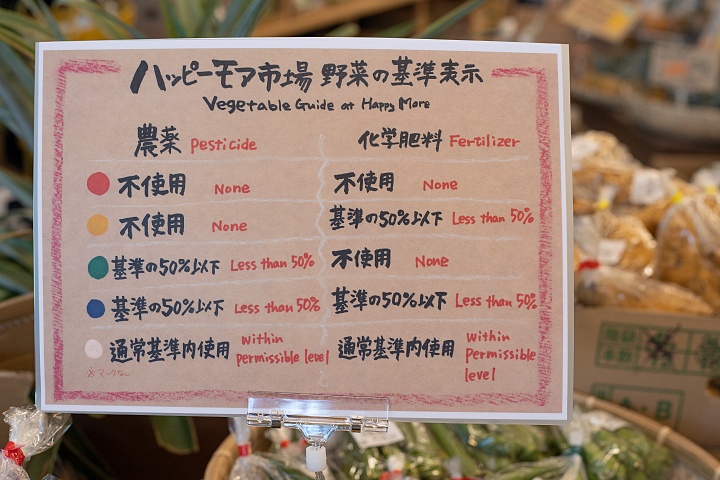 ハッピーモア市場 野菜の基準表示
Vegetable Guide at Happy More
農薬 Pesticide 化学肥料 Fertilizer
不使用 None 不使用 None
不使用 None 基準の50%以下 Less than 50%
基準の50%以下 Less than 50% 不使用 None
基準の50%以下 Less than 50% 基準の50%以下 Less than 50%
通常基準内使用 within permissible level 通常基準内使用 within permissible level
※マークなし